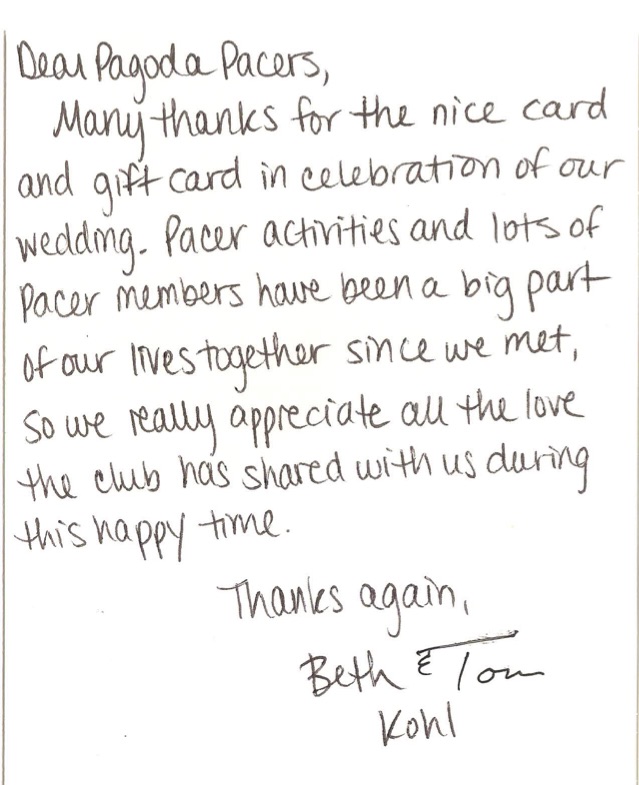 Dear Pagoda Pacers,
Many thanks for the nice card
and gift card in celebration of our
wedding. Pacer activities and lots of
Pacer members have been a big part
of our lives together since we met,
so we really appreciate all the love
the club has shared with us during
this happy time.
Thanks again,
Beth & Tom
Kohl